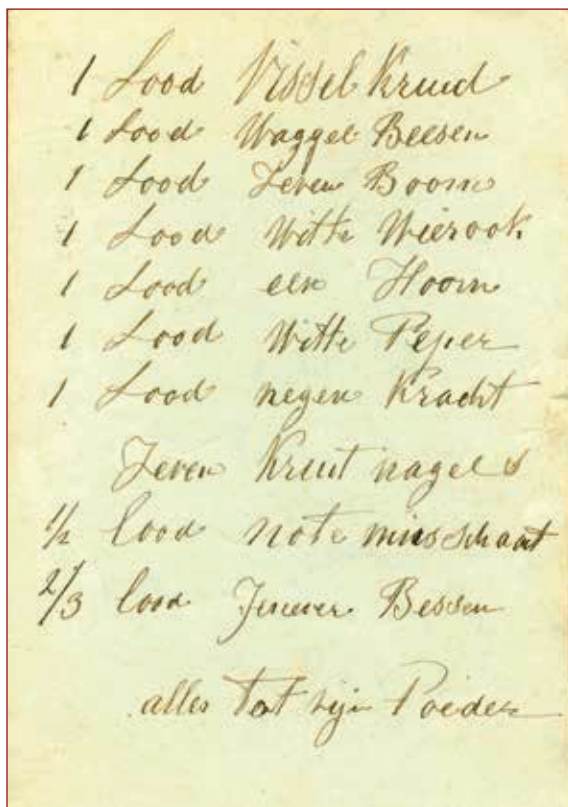 1 Lood Vissel Kruid
1 Lood Waggel Beesen
1 Lood Zeven Boom
1 Lood Witte Wierook
1 Lood een Hoorn
1 Lood Witte Peper
1 Lood negen Kracht
Zeven Kruit nagels
1/2 lood note musschaat
2/3 lood Jenever Bessen
alles tot Poeder